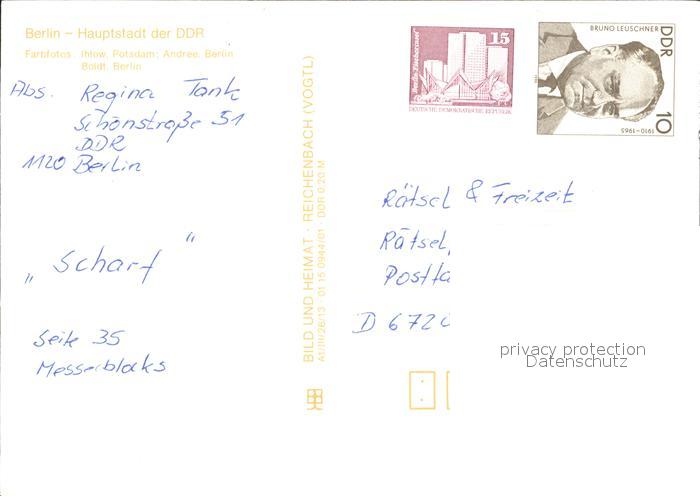 Berlin – Hauptstadt der DDR
Farbfotos: Ihlow, Potsdam; Andree, Berlin
Boldt, Berlin
Abs. Regina Tank
Schönstraße 51
DDR
1120 Berlin
„ Scharf "
Seite 35
Messerblocks
BILD UND HEIMAT · REICHENBACH (VOGTL)
A1/III/26/13 01 15 0944/01 · DDR 0,20 M
15
Berlin-Fischerinsel
DEUTSCHE DEMOKRATISCHE REPUBLIK
BRUNO LEUSCHNER
DDR
10
1910–1965
Rätsel & Freizeit
Rätsel,
Postfa
D 6720
privacy protection
Datenschutz